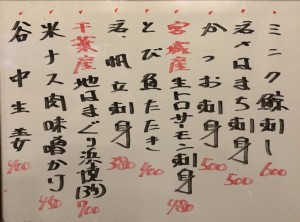 ミンク鯨刺し 600
君べはまち刺身 500
かつお刺身 500
宮城産 生トロサーモン刺身 480
とび魚たたき 400
君帆立刺身 380
千葉産 地はまぐり浜焼(3ヶ) 700
米ナス肉味噌かけ 480
谷中生姜 400